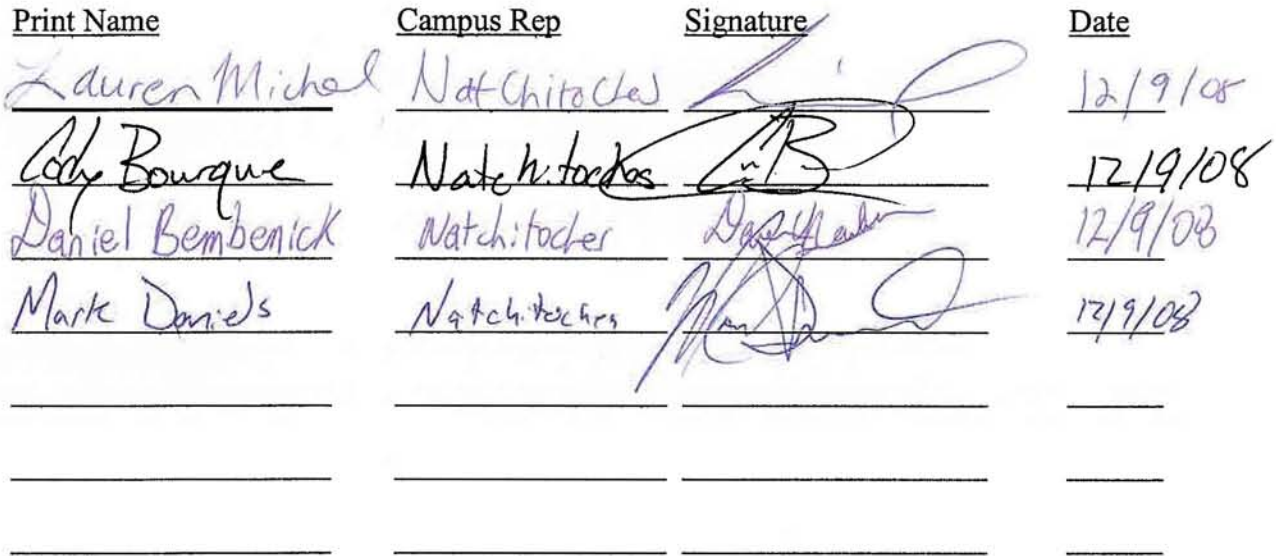 Print Name Campus Rep Signature Date
Lauren Michel Natchitoches 12/9/08
Cody Bourque Natchitoches CB 12/9/08
Daniel Bembenick Natchitoches 12/9/08
Mark Daniels Natchitoches 12/9/08